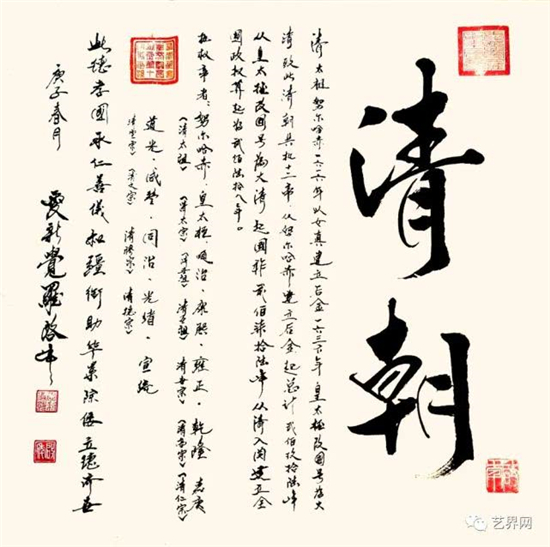 清朝
清太祖努尔哈赤一六一六年以女真建立后金一六三六年皇太极改国号为大
清改此清朝具批十二帝从努尔哈赤建立后金起总计贰佰玖拾陆年
从皇太极改国号为大清起国祚贰佰柒拾陆年从清入关建立全
国政权算起为贰佰陆拾八年。
权帝者：努尔哈赤、皇太极、顺治、康熙、雍正、乾隆、嘉庆
《清太祖》《清太宗》《清世祖》清圣祖 清世宗《清高宗》《清仁宗》
道光、咸豐、同治、光绪、宣统
清宣宗《清文宗》清穆宗 清德宗
德孝國承仁善儀叔疆衔助华業除倭立德济世
庚子春月
爱新覺羅
艺界网